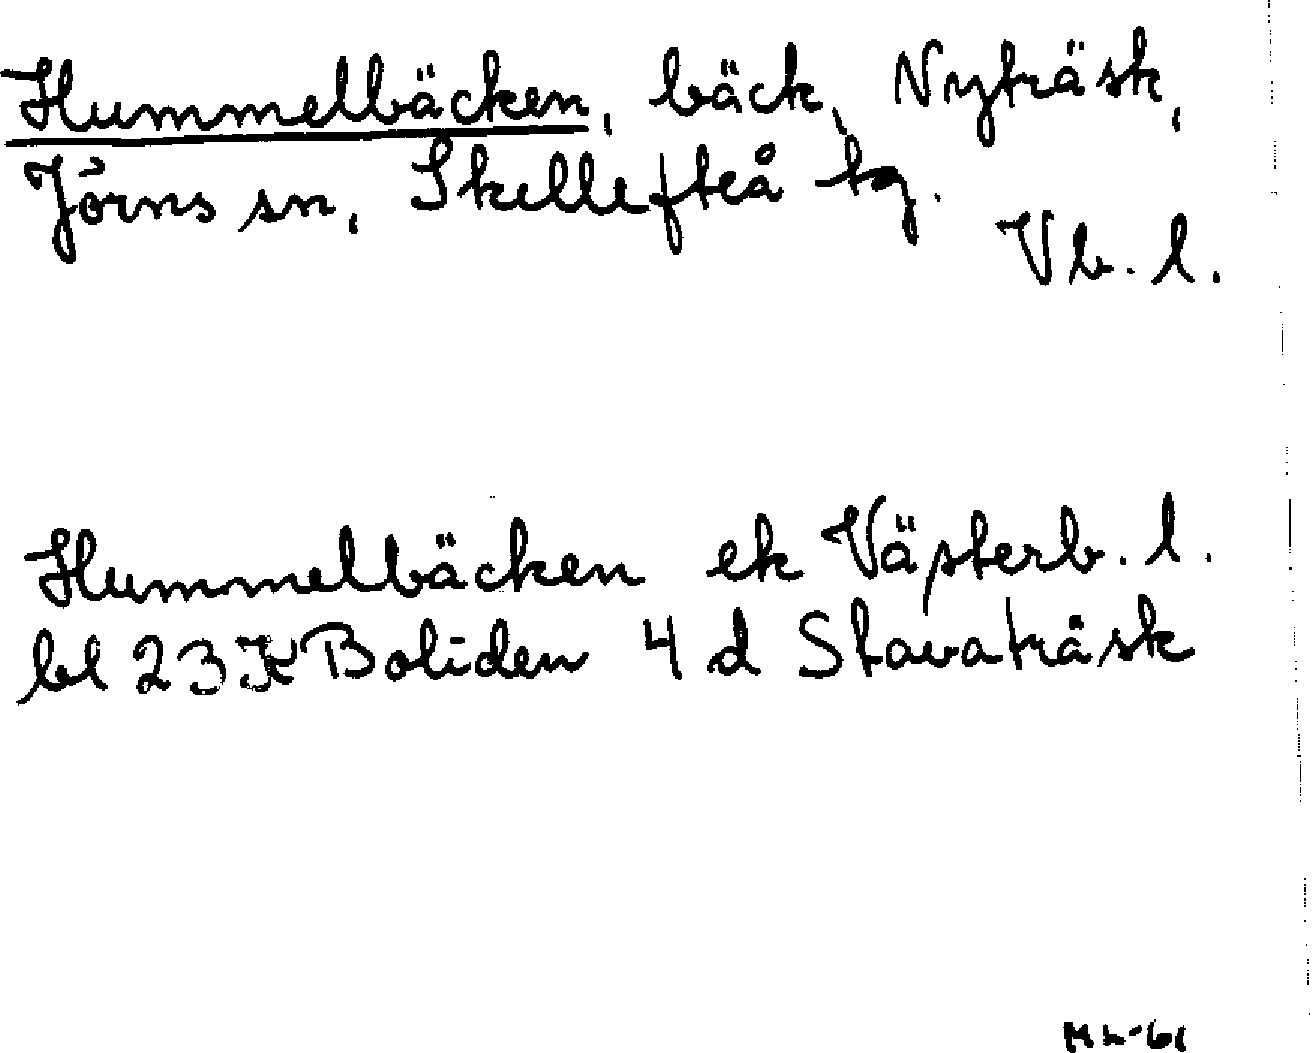 Hummelbäcken, bäck, Nyträsk,
Jörns sn, Skellefteå tg.
Vb. l.
Hummelbäcken ek Västerb. l.
bl 23K Boliden 4 d Stavaträsk
ML-61